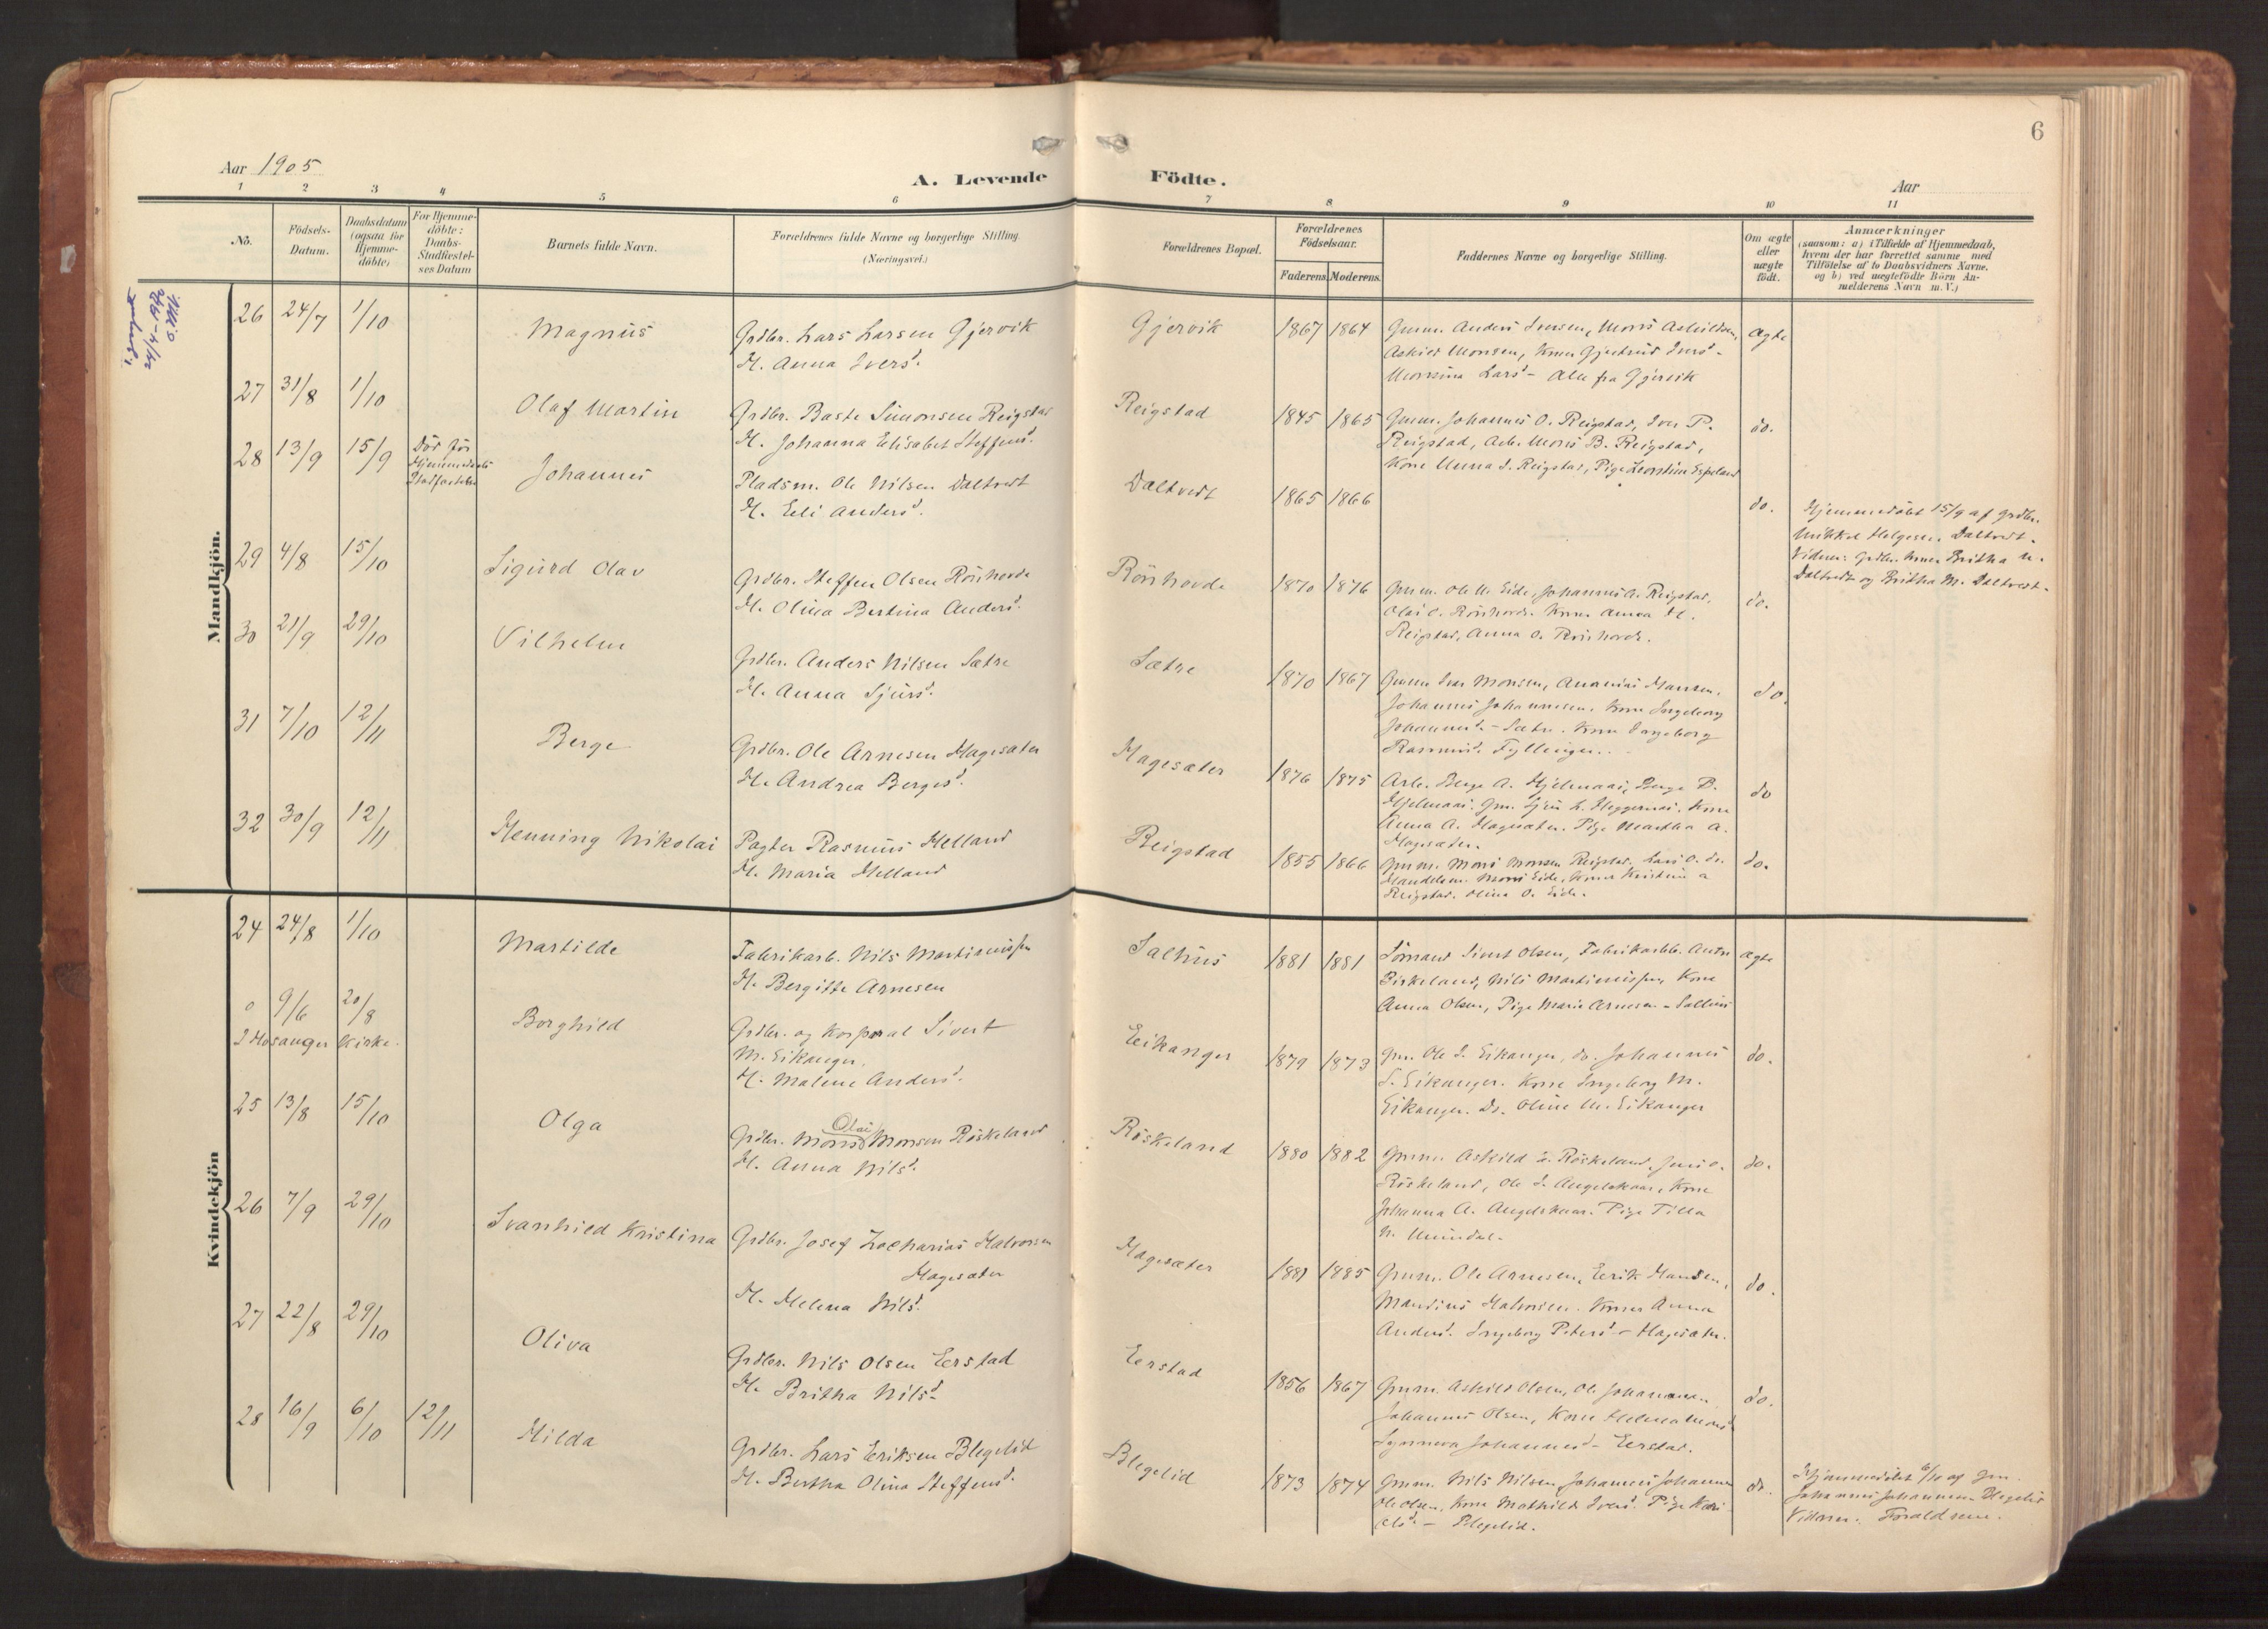 6
Aar 1905
A. Levende Födte.
Aar
1 2 3 4 5 6 7 8 9 10 11
No.
Födsels-
Datum.
Daabsdatum
(ogsaa for
Hjemme-
döbte)
For Hjemme-
döbte:
Daabs-
Stadfæstel-
ses Datum
Barnets fulde Navn.
Forældrenes fulde Navne og borgerlige Stilling.
(Næringsvei.)
Forældrenes Bopæl.
Forældrenes
Födselsaar.
Faderens. Moderens.
Faddernes Navne og borgerlige Stilling.
Om ægte
eller
uægte
født.
Anmærkninger
(saasom: a) i Tilfælde af Hjemmedaab,
hvem der har forrettet samme med
Tilföielse af to Daabsvidners Navne.
og b) ved uægtefödte Börn An-
melderens Navn m. V.)
24/4-1942
Mandkjön.
26 24/7 1/10 Magnus
Grdbr. Lars Larsen Gjervik
H. Anna Iversd.
Gjervik 1867 1864
Gmm. Anders Iversen, Mons Askildsen,
Askild Monsen, Kone Gjertrud Iversd-
Monsina Larsd- Alle fra Gjervik
ægte
27 31/8 1/10 Olaf Martin
Grdbr. Baste Simonsen Reigstad
H. Johanna Elisabet Steffensd.
Reigstad 1845 1865
Gmm. Johannes O. Reigstad, Iver P.
Reigstad, Arb. Mons B. Reigstad,
Kone Anna S. Reigstad, Pige
do.
28 13/9 15/9 Död för
Hjemmedaabs
Johannes
Pladsm. Ole Nilsen Daltvedt
H. Eli Andersd.
Daltvedt 1865 1866
do.
Hjemmedöbt 15/9 af grdbr.
Mikkel Helgesen Daltvedt.
Vidner: Grdbr. Kone Britha N.
Daltvedt og Britha M. Daltvedt.
29 4/8 15/10 Sigurd Olav
Grdbr. Steffen Olsen Rönhovde
H. Olina Bertina Andersd.
Rönhovde 1870 1876
Gmm. Ole M. Eide, Johannes A. Reigstad,
Olai O. Rönhovde. Kone Anna H.
Reigstad, Anna O. Rönhovde.
do.
30 21/9 29/10 Vilhelm
Grdbr. Anders Nilsen Sætre
H. Anna Sjursd.
Sætre 1870 1867
Gmm Iver Monsen, Ananias Hansen,
Johannes Johannesen. Kone Ingeborg
Johannesd.- Sætre. Kone Ingeborg
Rasmusd. Fyllingen.
do.
31 7/10 12/11 Berge
Grdbr. Ole Arnesen Hagesæter
H. Andrea Bergesd.
Hagesæter 1876 1875
Arb. Berge A. Hjelmaas, Berge B.
Hjelmaas. Gm. Sjur L. Heggernæs. Kone
Anna A. Hagesæter. Pige Martha A.
Hagesæter.
do
32 30/9 12/11 Henning Nikolai
Pagter Rasmus Helland
H. Maria Helland
Reigstad 1855 1866
Gmm. Mons Monsen Reigstad, Lars O. do.
Handelsm. Mons Eide, Kone Kristine A
Reigstad. Olina O. Eide.
do.
Kvindekjön
24 24/8 1/10 Martilde
Fabrikarb. Nils Martinussen
H. Bergitte Arnesen
Salhus 1881 1881
Sömand Sivert Olsen, Fabrikarbb. Andr
Birkeland, Nils Martinussen, Kone
Anna Olsen, Pige Marie Arnesen - Salhus
ægte
0 9/6 20/8
I Hosanger Kirke.
Borghild
Grdbr. og Korporal Sivert
M. Eikanger.
H. Malene Andersd.
Eikanger 1879 1873
Gm. Ole S. Eikanger, do. Johannes
S. Eikanger. Kone Ingeborg M.
Eikanger. Do. Oline M. Eikanger
do.
25 13/8 15/10 Olga
Olai
Grdbr. Mons Monsen Röskeland
H. Anna Nilsd.
Röskeland 1880 1882
Gmm. Askild A. Röskeland, Jens O.
Röskeland, Ole I. Angelskaar, Kone
Johanna A. Angelskaar. Pige Tilla
N. Mundal.
do.
26 7/9 29/10 Svanhild Kristina
Grdbr. Josef Zacharias Halvorsen
Hagesæter
H. Helena Nilsd.
Hagesæter 1881 1885
Gmm. Ole Arnesen, Eerik Hansen,
Mandius Halvorsen. Kone Anna
Andersd. Ingeborg Petersd - Hagesæter.
do.
27 22/8 29/10 Oliva
Grdbr. Nils Olsen Eerstad
H. Britha Nilsd-
Eerstad 1856 1867
Gmm. Askild Olsen, Ole Johannesen,
Johannes Olsen, Kone Helena Monsd
Synneva Johannesd- Eerstad.
do.
28 16/9 6/10 12/11 Hilda
Grdbr. Lars Eriksen Blegelid
H. Bertha Olina Steffensd.
Blegelid 1873 1874
Gmm. Nils Nilsen, Johannes Johannes
Ole Olsen, Kone Mathilde Iversd. Pige Kari
Olsd. - Blegelid.
do.
Hjemmedöbt 6/10 af Gm.
Johannes Johannesen Blegelid
Vidner: Forældrene.